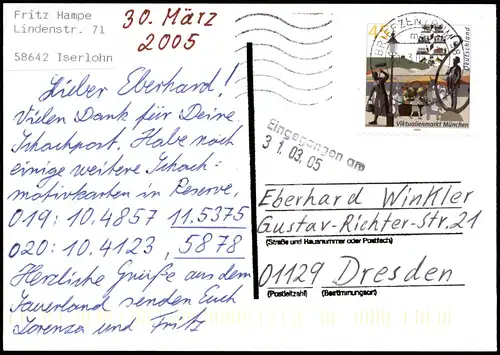 Fritz Hampe
Lindenstr. 71
58642 Iserlohn
30. März
2005
Lieber Eberhard!
Vielen Dank für Deine
Schachpost. Habe noch
einige weitere Schach-
motivkarten in Reserve,
019: 10.4857 11.5375
020: 10.4123, 5878
Herzliche Grüße aus dem
Sauerland senden Euch
Lorenza und Fritz
BRIEFZENTRUM
Deutschland
Viktualienmarkt München
Eingegangen am
31.03.05
Eberhard Winkler
Gustav-Richter-Str. 21
(Straße und Hausnummer oder Postfach)
01129 Dresden
(Postleitzahl) (Bestimmungsort)